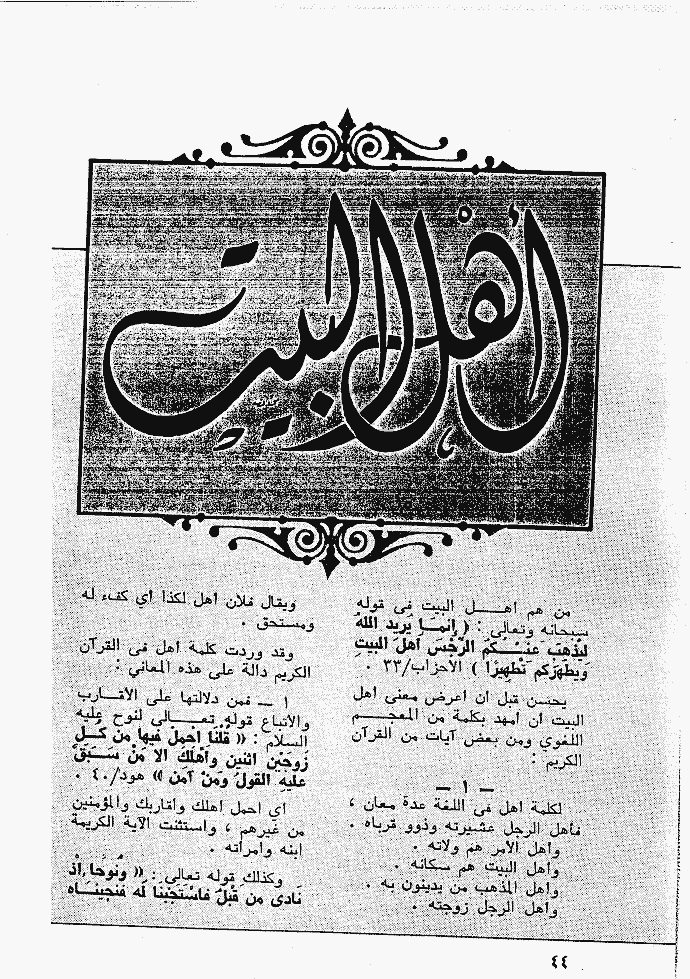 أهل البيت
من هم أهـــل البيت في قوله
سبحانه وتعالى : ( إنمـــا يريد الله
ليذهب عنـــكم الرجس أهل البيت
ويطهركم تطهيرا ) الأحزاب/٣٣ .
يحسن قبل أن أعرض معنى أهل
البيت أن أمهد بكلمة من المعجـــم
اللغوي ومن بعض آيات من القرآن
الكريم :
— ١ —
لكلمة أهل في اللغة عدة معان ،
فأهل الرجل عشيرته وذوو قرباه .
وأهل الأمر هم ولاته .
وأهل البيت هم سكانه .
وأهل المذهب من يدينون به .
وأهل الرجل زوجته .
ويقال فلان أهل لكذا أي كفء له
ومستحق .
وقد وردت كلمة أهل في القرآن
الكريم دالة على هذه المعاني :
١ — فمن دلالتها على الأقــارب
والأتباع قوله تعـــالى لنوح عليه
السلام : « قلنا احمل فيها من كـــل
زوجين اثنين وأهلك إلا من ســـبق
عليه القول ومن آمن » هود/٤٠ .
أي احمل أهلك وأقاربك والمؤمنين
من غيرهم ، واستثنت الآية الكريمة
ابنه وامرأته .
وكذلك قوله تعالى : « ونوحا إذ
نادى من قبل فاستجبنا له فنجينـــاه
٤٤